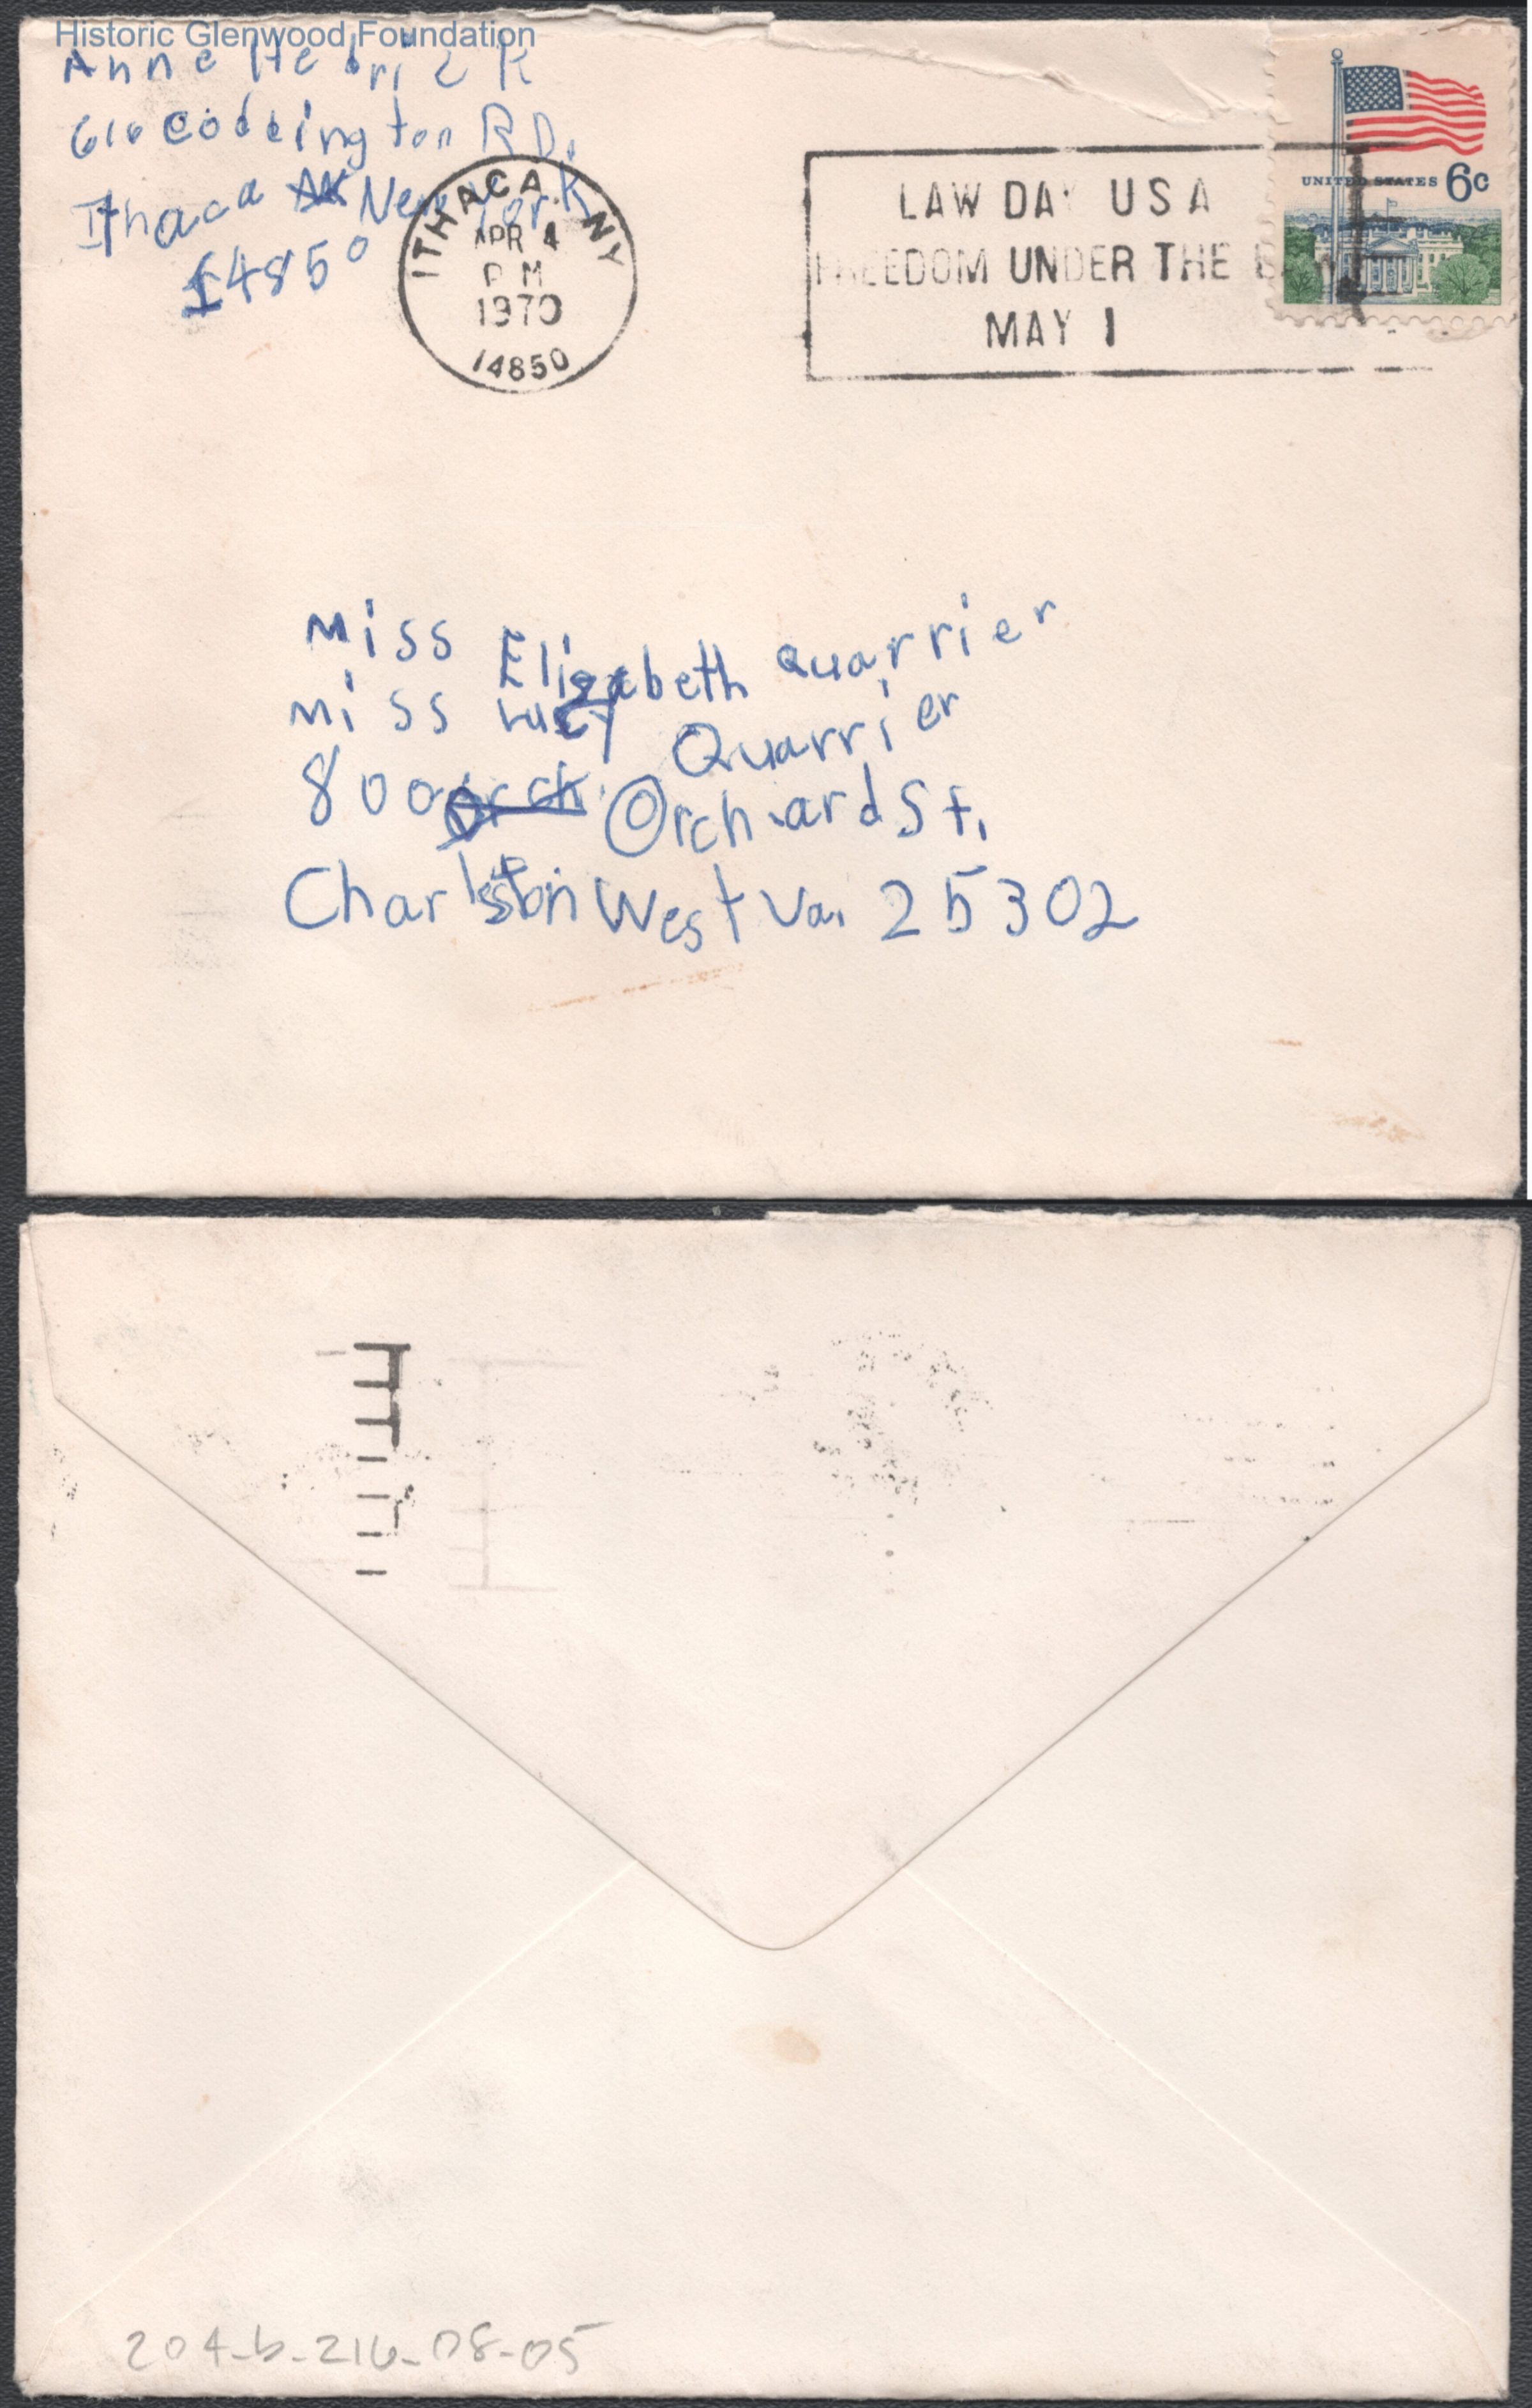 Historic Glenwood Foundation
Anne
616 Coddington RD.
Ithaca New York
14850
ITHACA NY
APR 4
PM
1970
14850
LAW DAY USA
FREEDOM UNDER THE LAW
MAY 1
UNITED STATES 6c
Miss Elizabeth Quarrier
Miss Lucy Quarrier
800 Orch Orchard St.
Charleston West Va. 25302
204-b-216-08-05